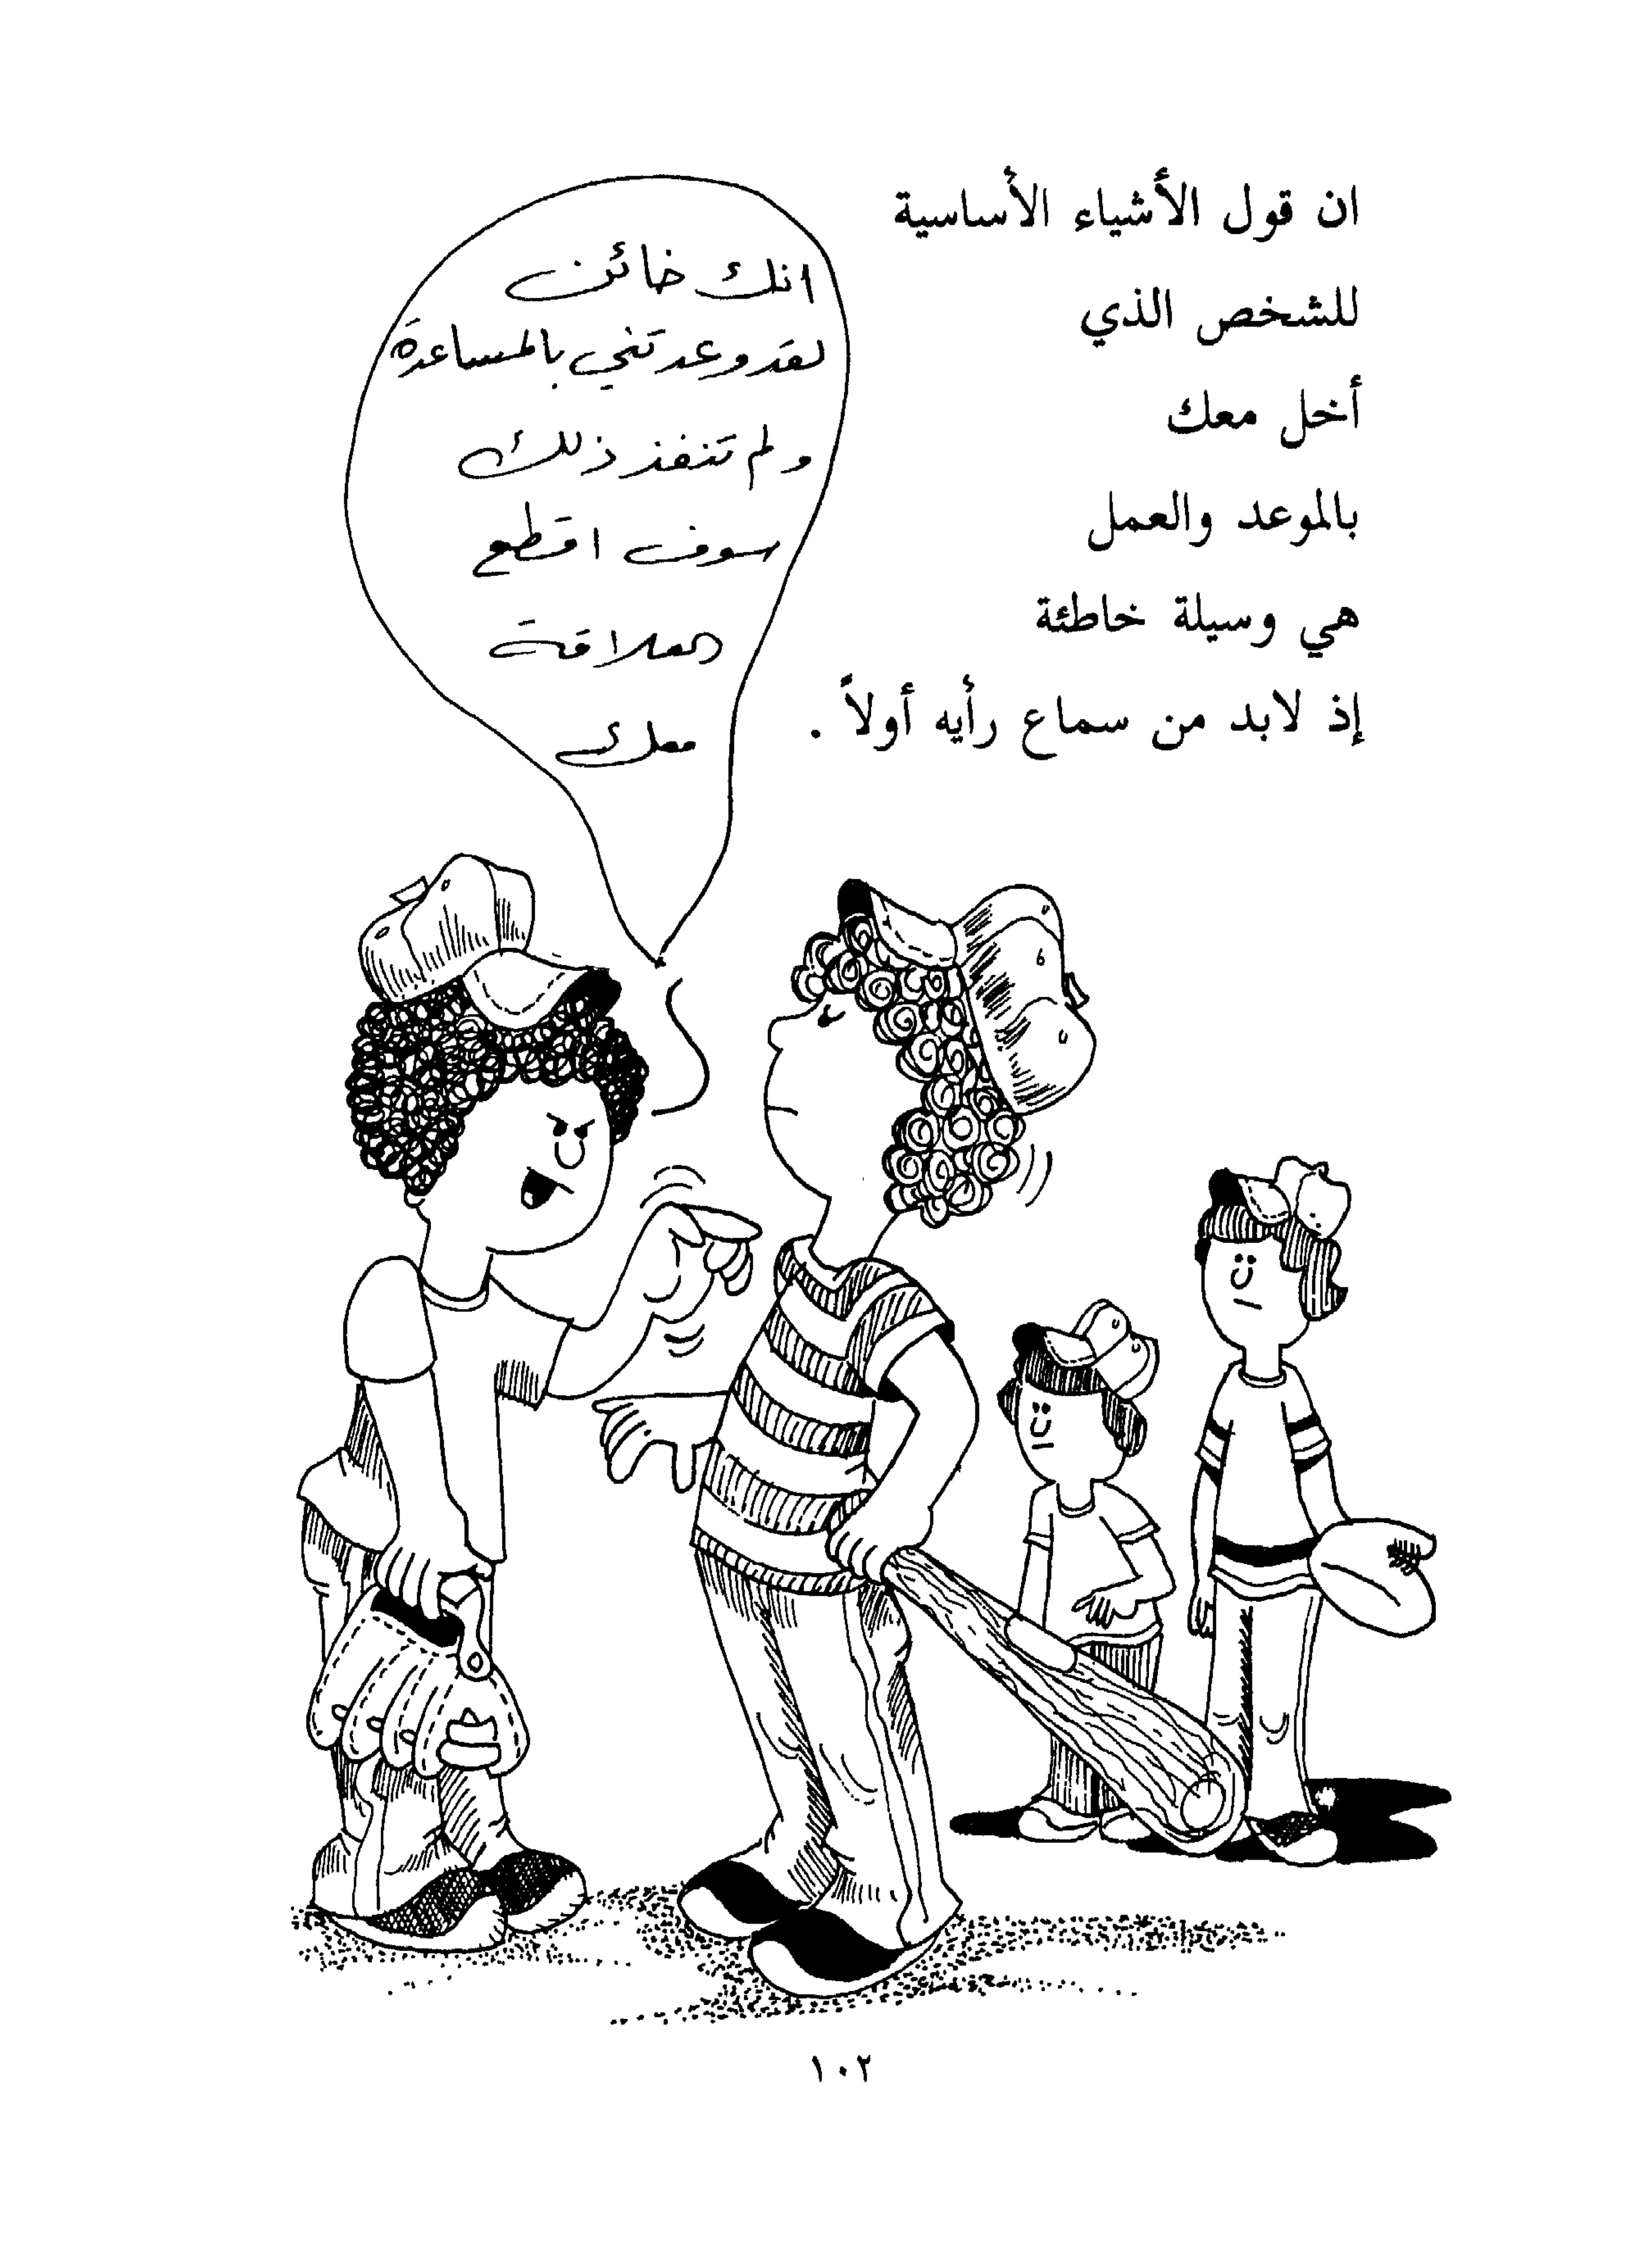 ان قول الأشياء الأساسية
للشخص الذي
أخل معك
بالموعد والعمل
هي وسيلة خاطئة
إذ لابد من سماع رأيه أولاً .
انك خائن
لقد وعدتني بالمساعدة
ولم تنفذ ذلك
سوف اقطع
العلاقة
معك
١٠٢